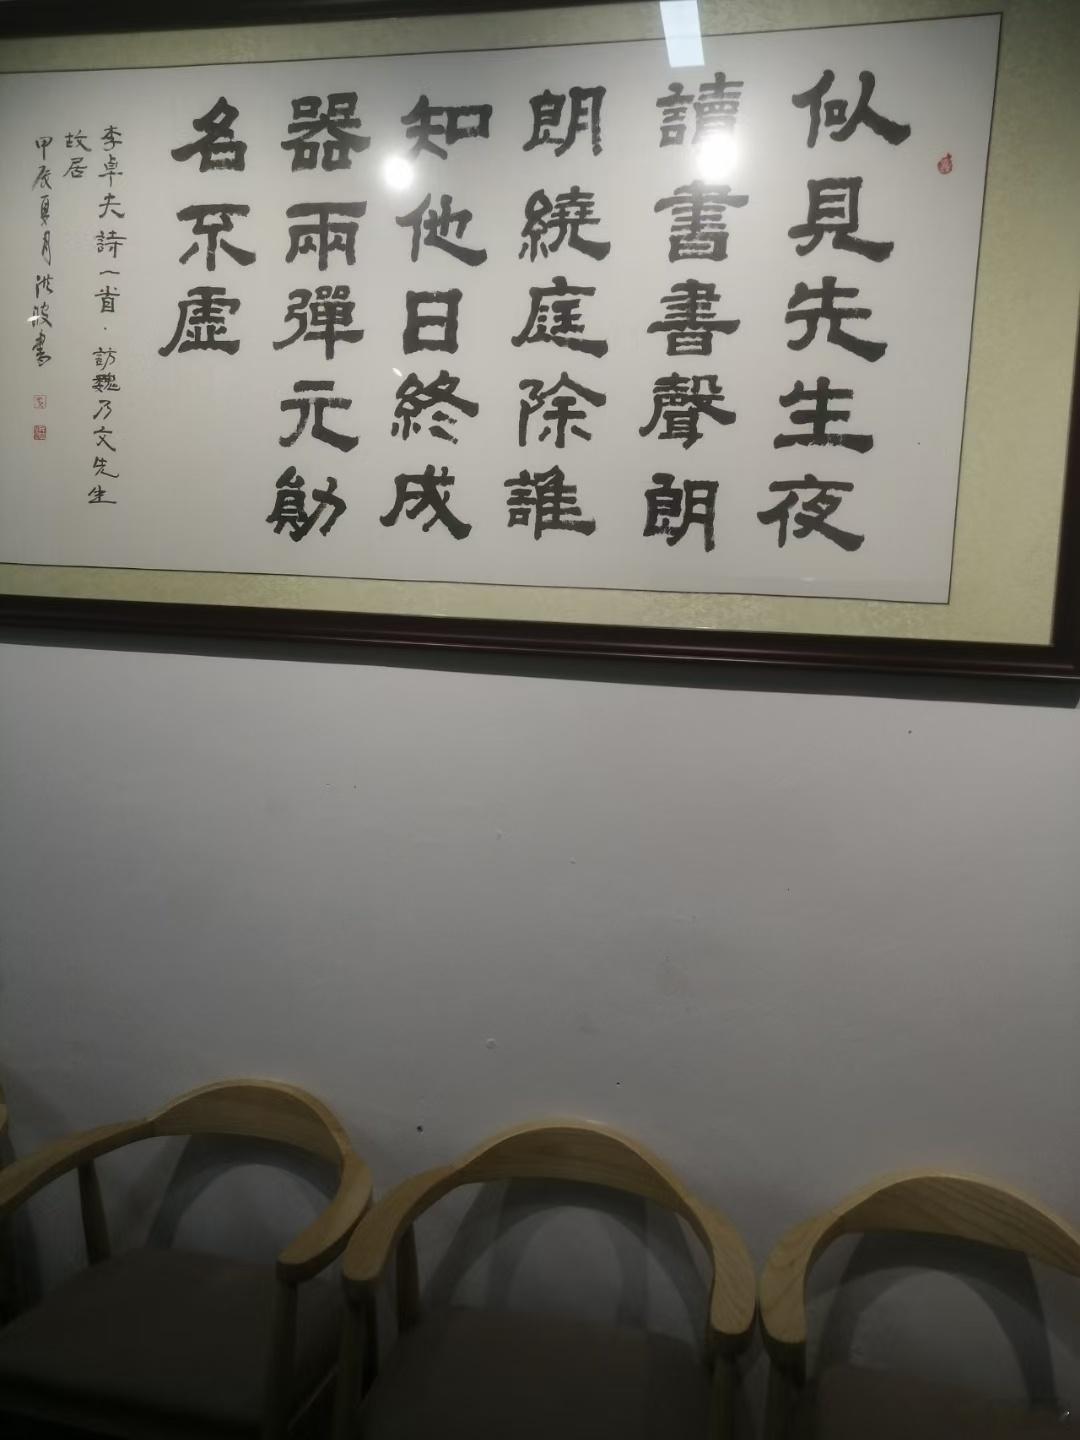 似見先生夜
讀書書聲朗
朗繞庭除誰
知他日終成
器兩彈元勛
名不虛
李卓夫詩一首·訪魏乃文先生
故居
甲辰夏月洪波書